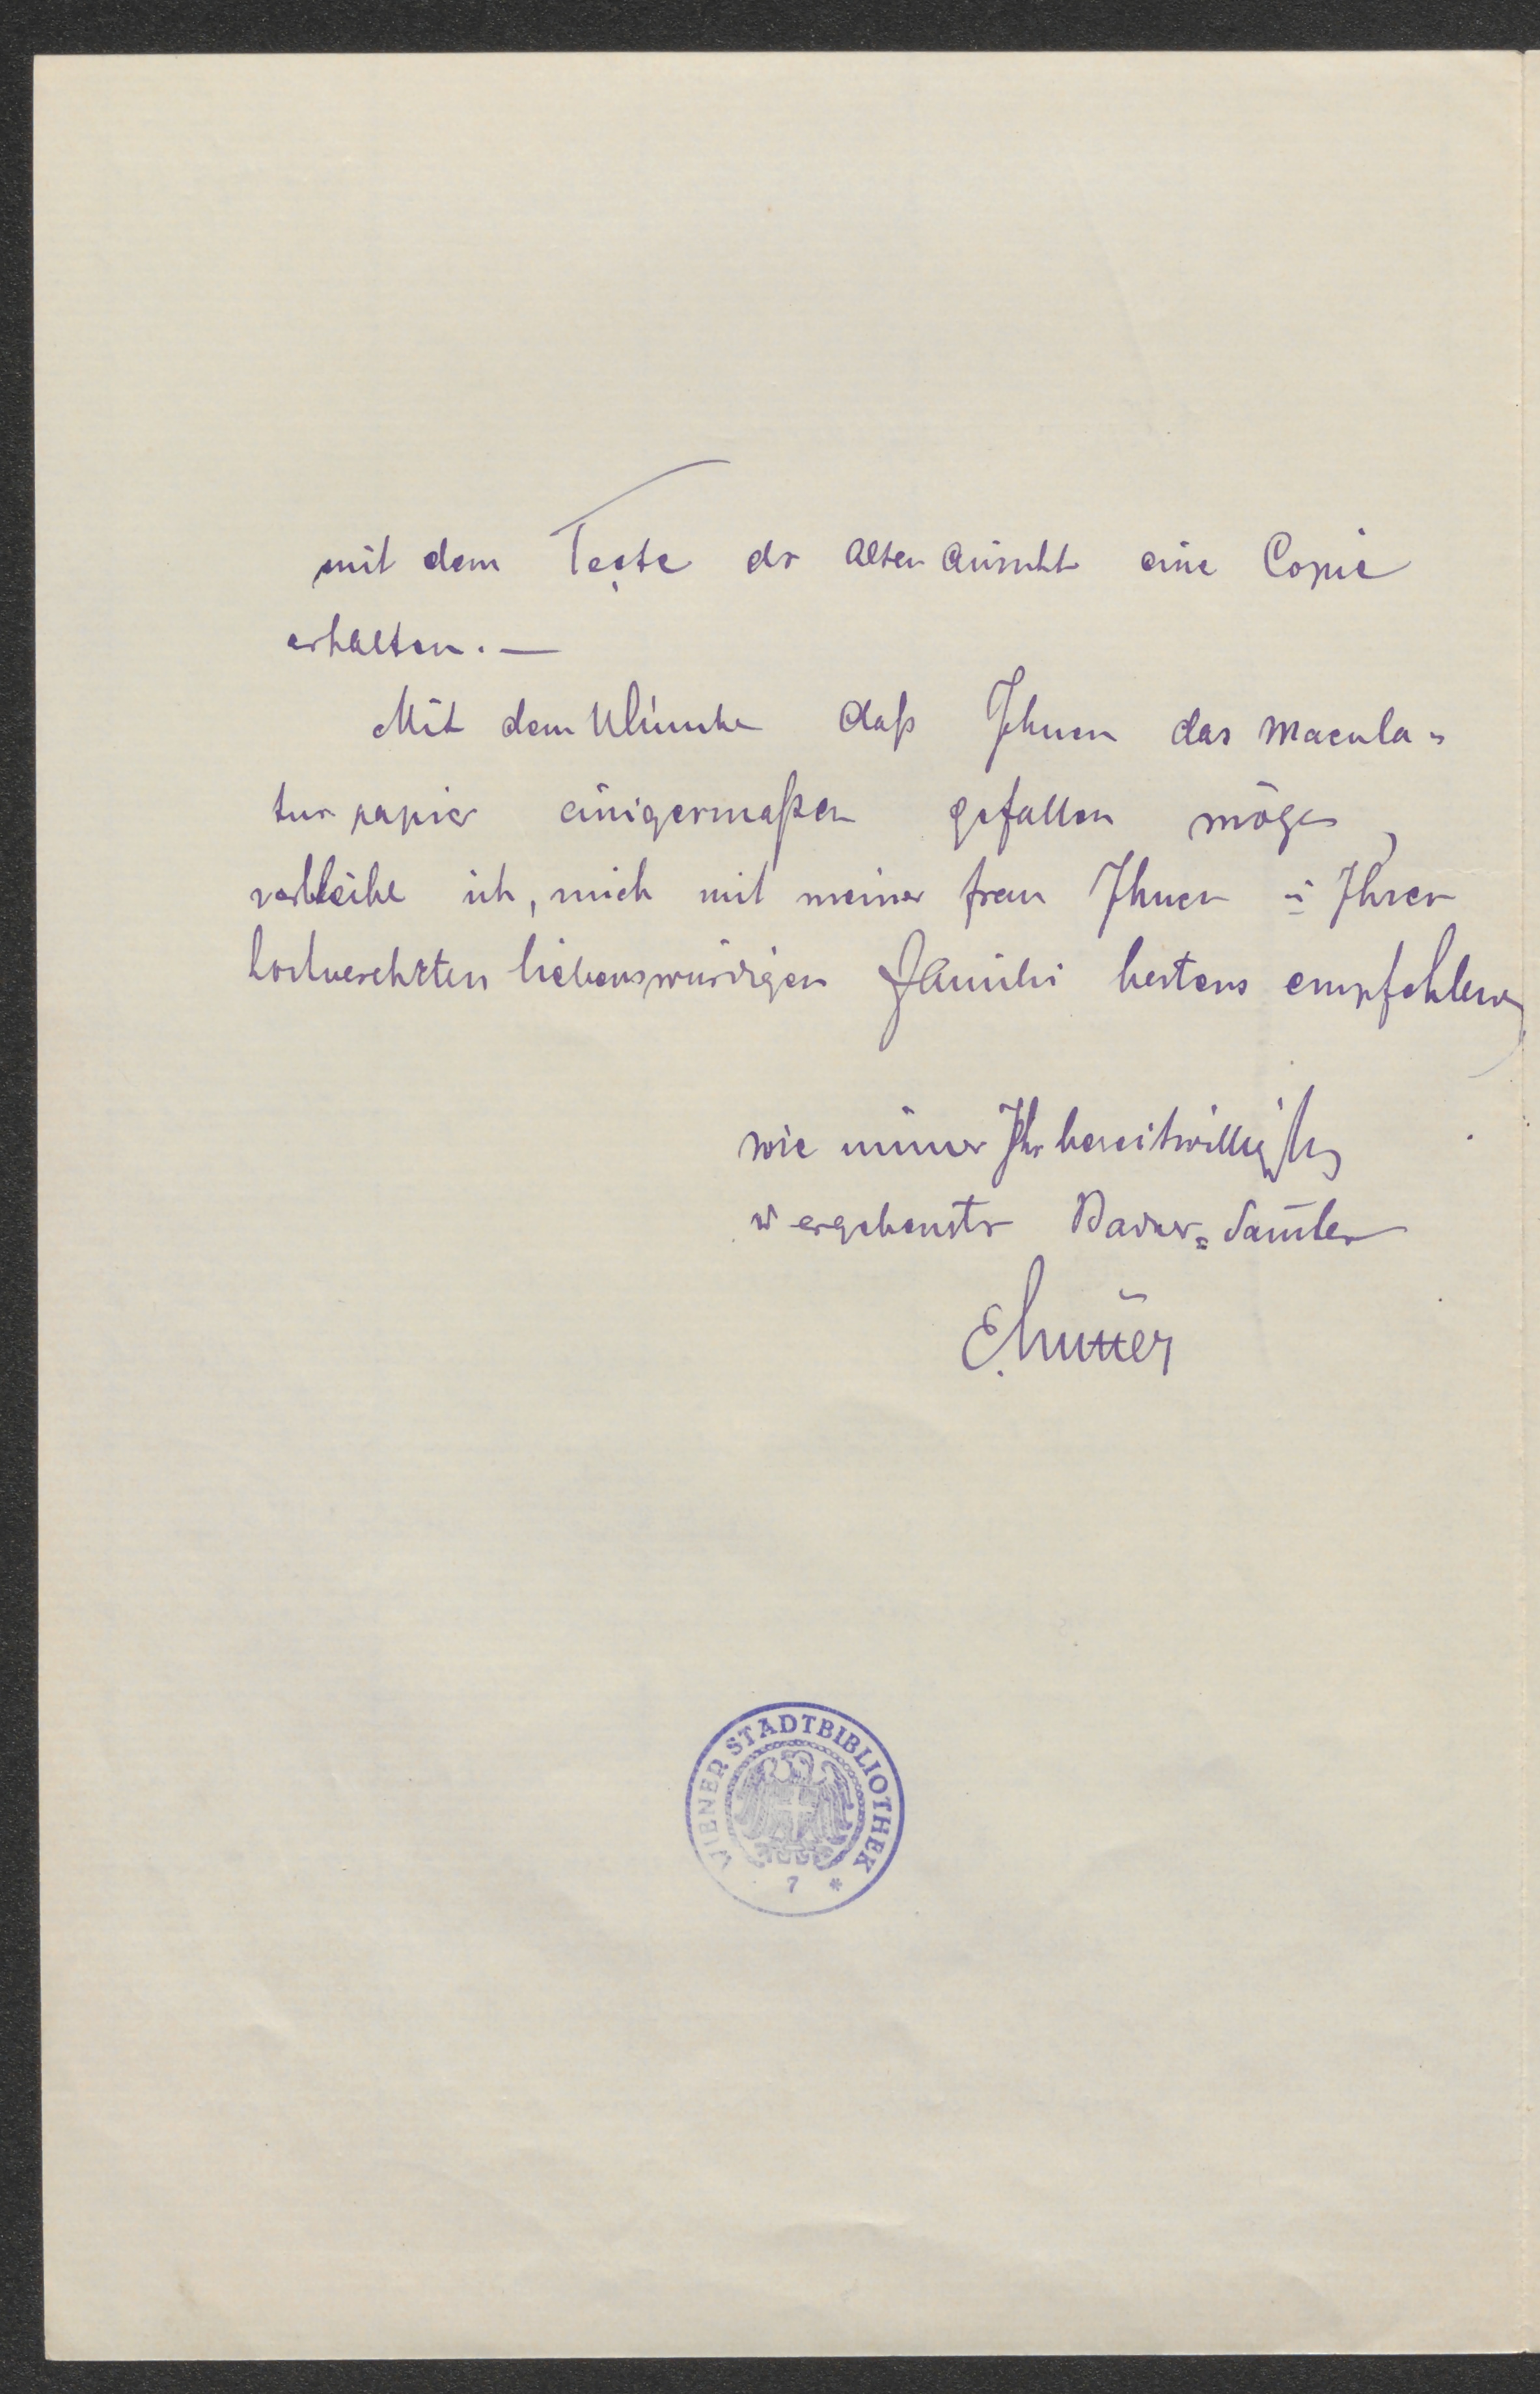 mit dem Texte der alten Ansicht eine Copie
erhalten. —
Mit dem Wunsche daß Ihnen das Macula=
tur papier einigermaßen gefallen möge,
verbleibe ich, mich mit meiner Frau Ihnen u Ihrer
hochverehrten liebenswürdigen Familie bestens empfehlend
wie immer Ihr bereitwilligster
u ergebenster Badner=Samler
WIENER STADTBIBLIOTHEK
7 *